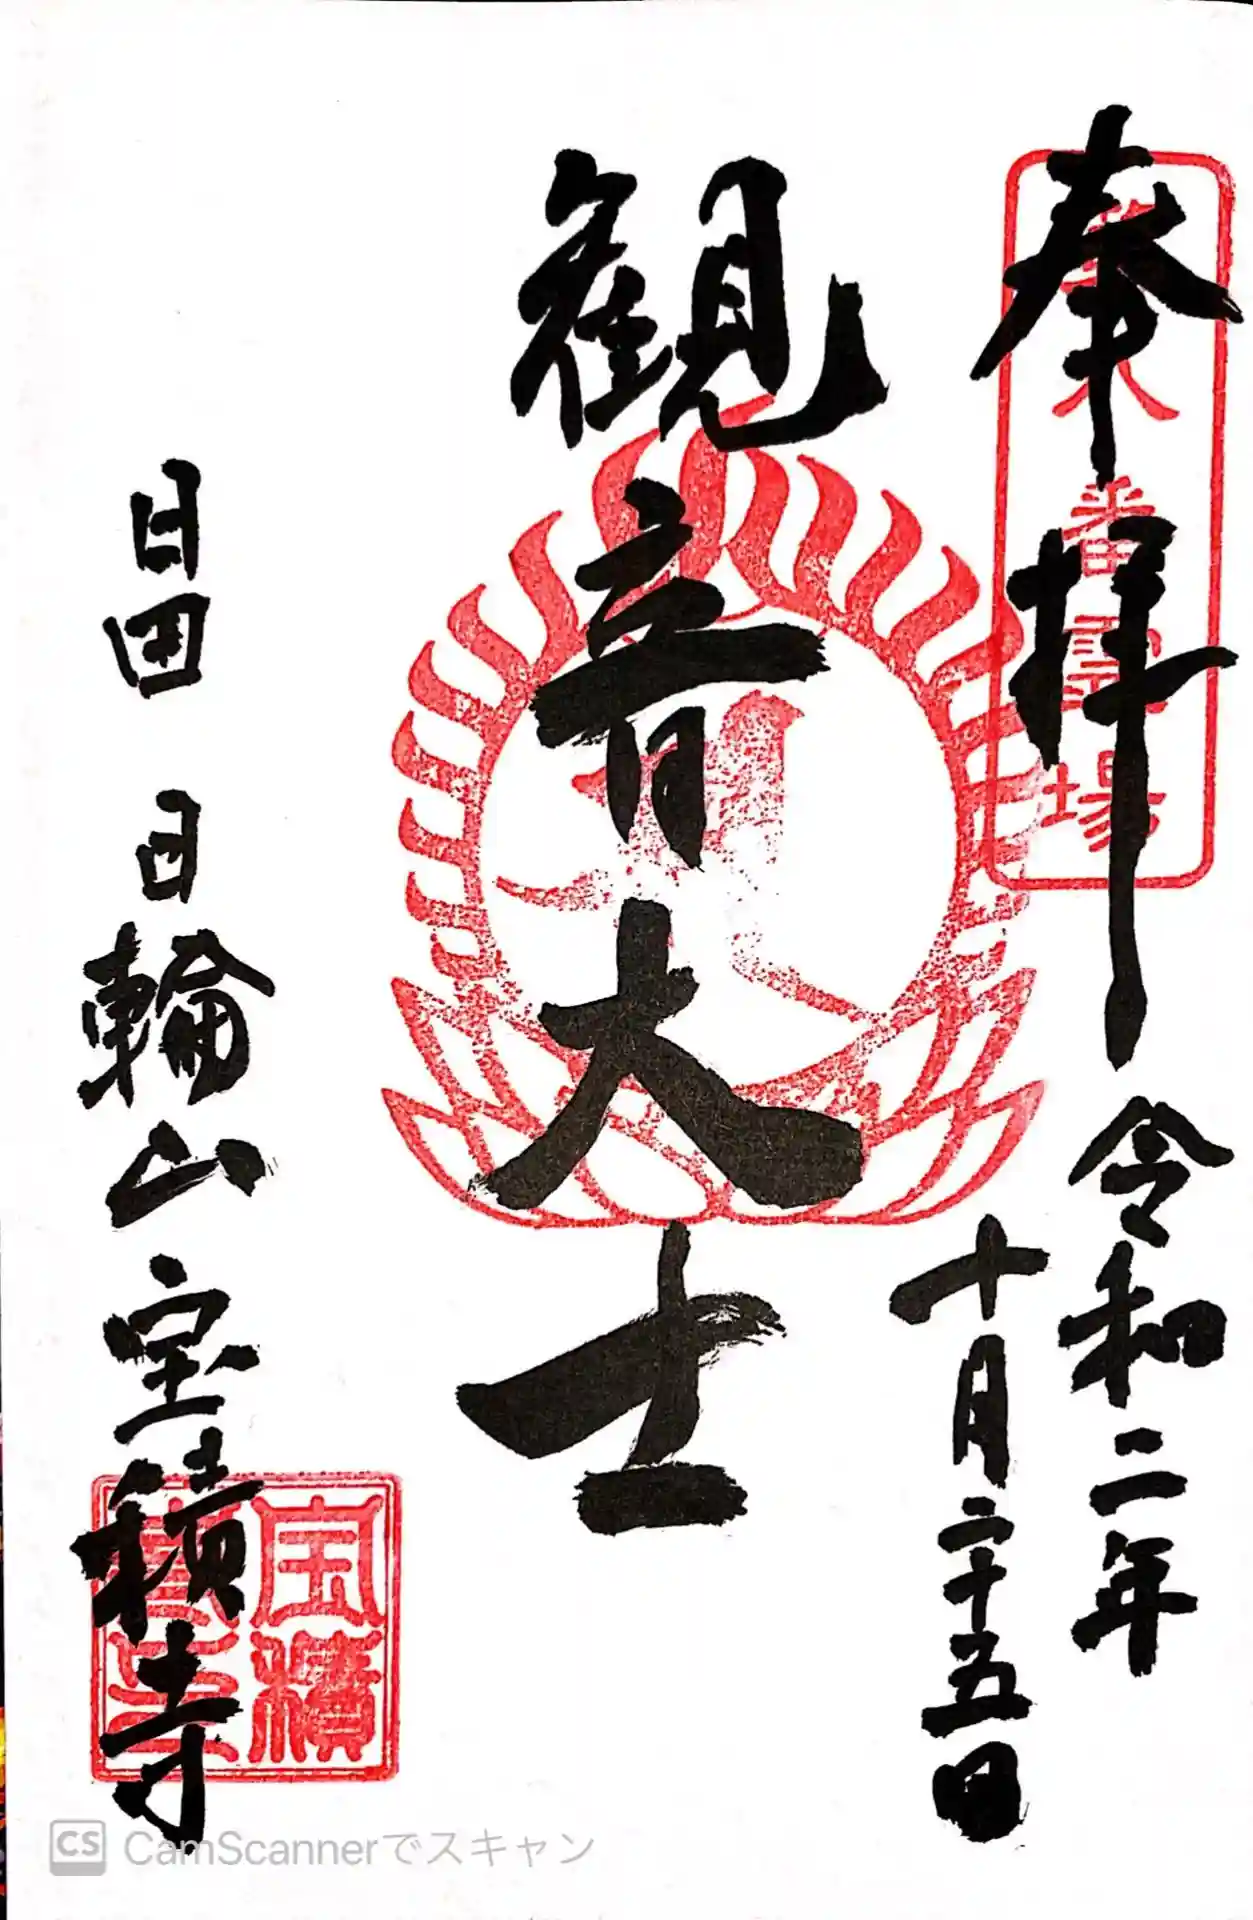 奉拝
令和二年
十月二十五日
観音大士
日田 日輪山 宝積寺
番霊場
宝積
CamScannerでスキャン